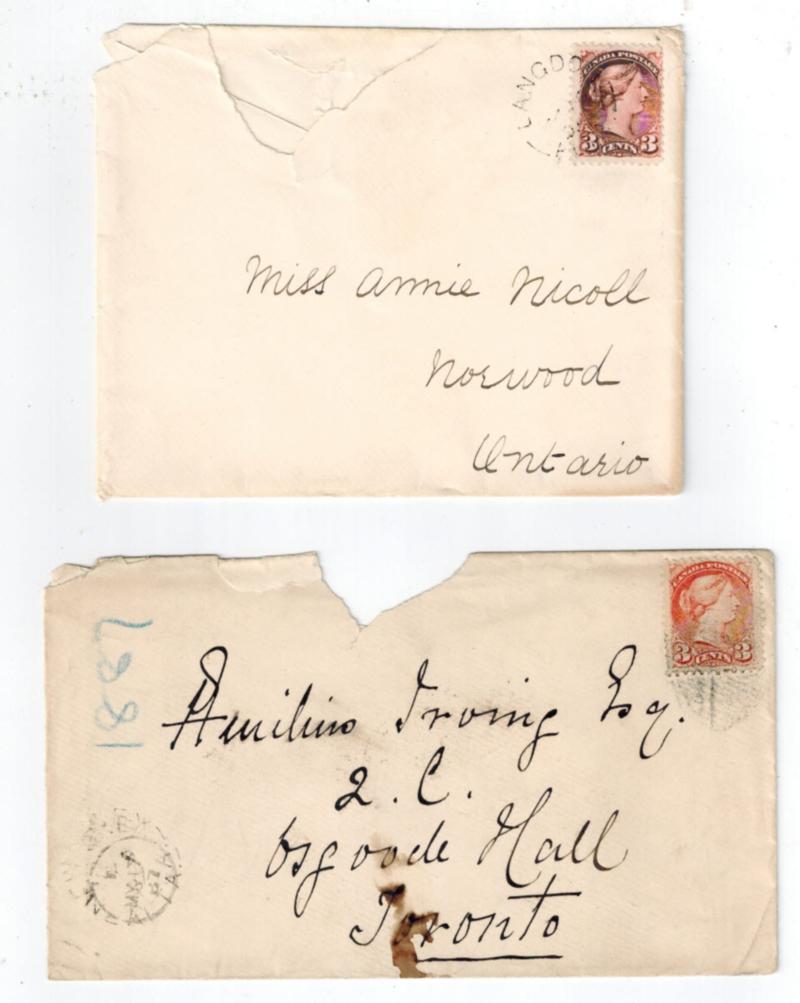 LANGDO
CANADA POSTAGE
3 CENTS 3
Miss Annie Nicoll
Norwood
Ontario
CANADA POSTAGE
3 CENTS 3
Æmilius Irving Esq.
Q. C.
Osgoode Hall
Toronto